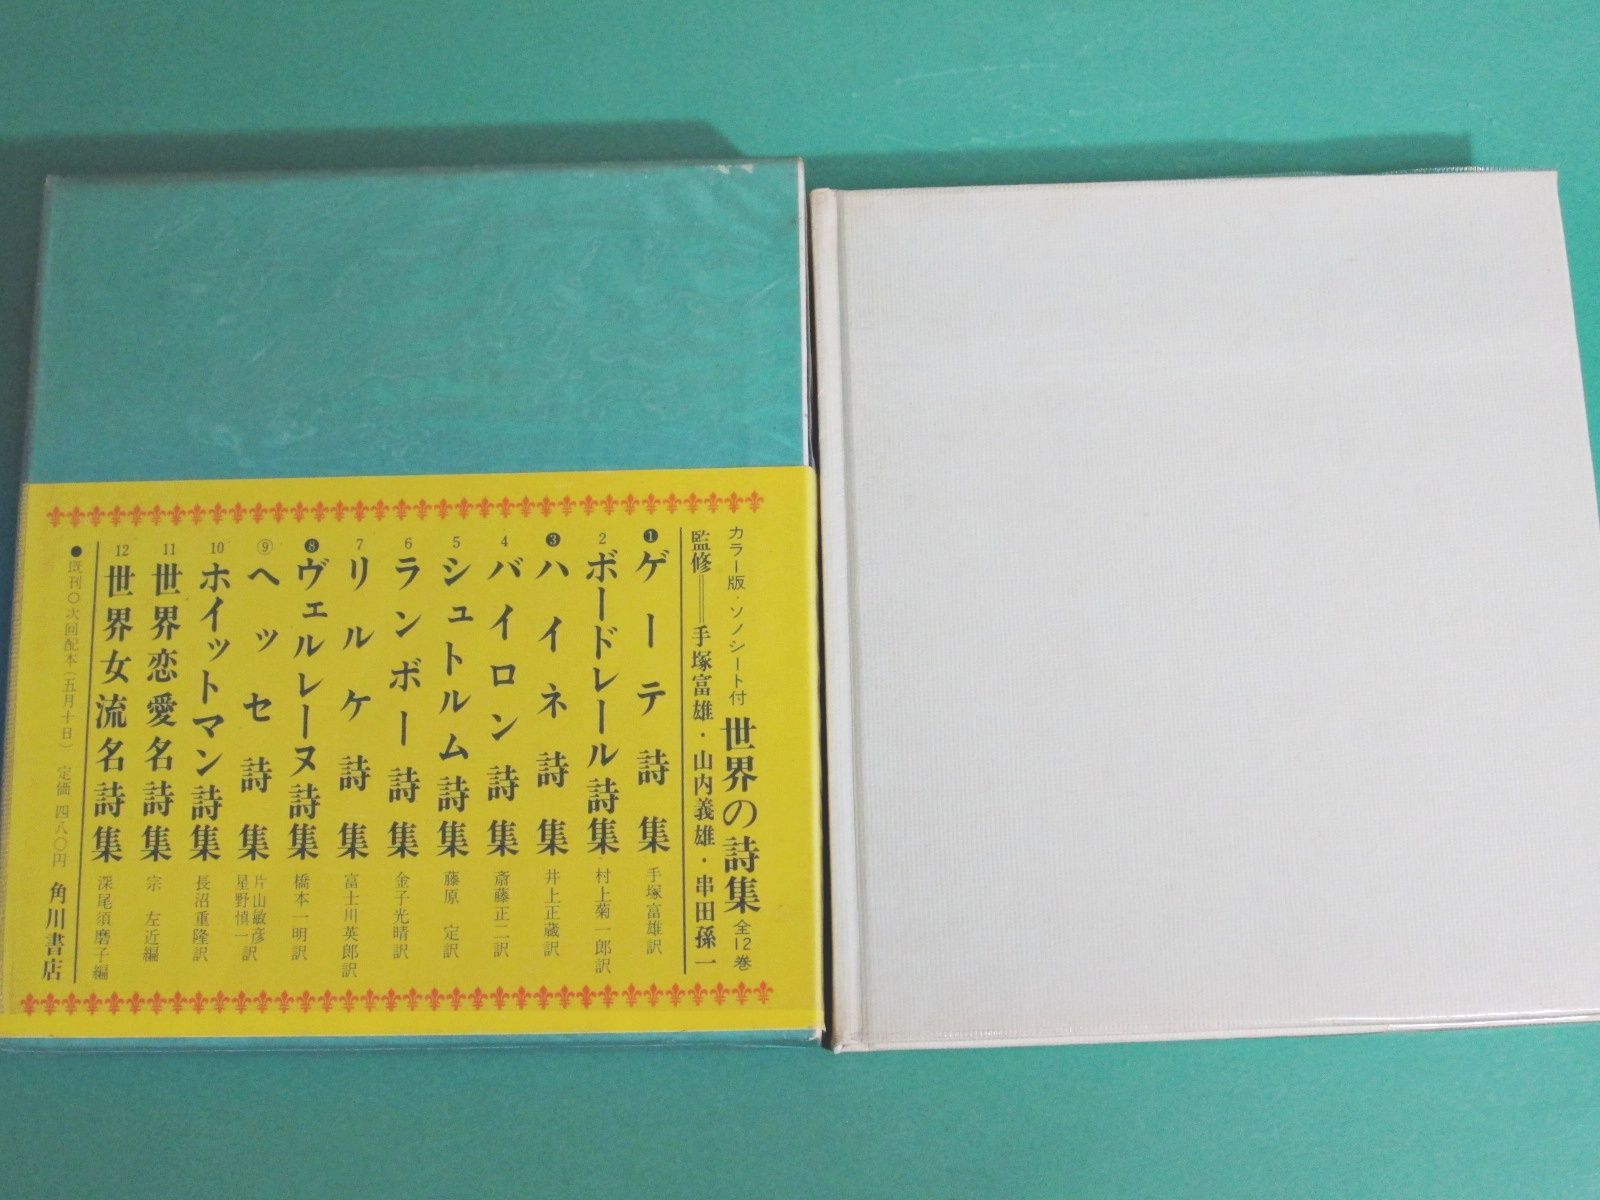 カラー版・ソノシート付 世界の詩集 全12巻
監修＝手塚富雄・山内義雄・串田孫一
❶ ゲーテ詩集 手塚富雄訳
2 ボードレール詩集 村上菊一郎訳
❸ ハイネ詩集 井上正蔵訳
4 バイロン詩集 斎藤正二訳
5 シュトルム詩集 藤原 定訳
6 ランボー詩集 金子光晴訳
7 リルケ詩集 富士川英郎訳
❽ ヴェルレーヌ詩集 橋本一明訳
⑨ ヘッセ詩集 片山敏彦訳 星野慎一訳
10 ホイットマン詩集 長沼重隆訳
11 世界恋愛名詩集 宗 左近編
12 世界女流名詩集 深尾須磨子編
●既刊○次回配本(五月十日) 定価 四八〇円 角川書店